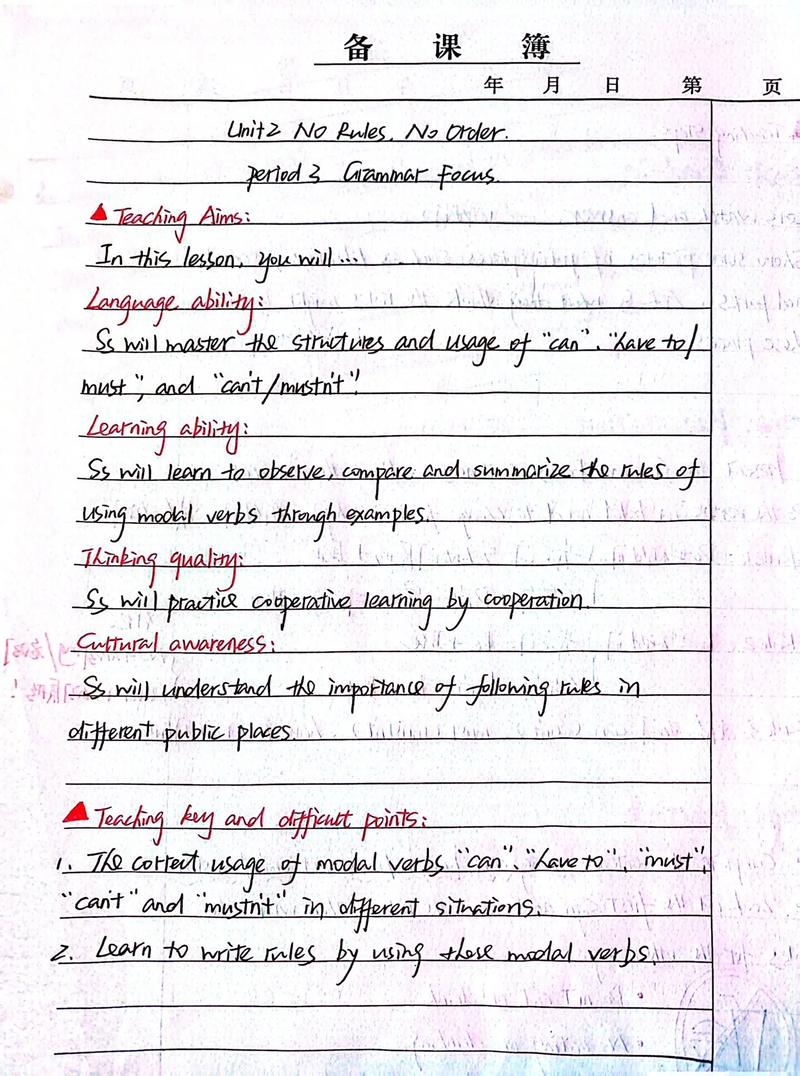 备 课 簿
年 月 日 第 页
Unit2 No Rules, No Order.
period 3 Grammar Focus.
▲ Teaching Aims:
In this lesson, you will...
Language ability:
Ss will master the structures and usage of "can". "have to/
must", and "can't/mustn't".
Learning ability:
Ss will learn to observe, compare and summarize the rules of
using modal verbs through examples.
Thinking quality:
Ss will practice cooperative learning by cooperation.
Cultural awareness:
Ss will understand the importance of following rules in
different public places.
▲ Teaching key and difficult points:
1. The correct usage of modal verbs "can". "have to". "must",
"can't" and "mustn't" in different situations.
2. Learn to write rules by using these modal verbs.